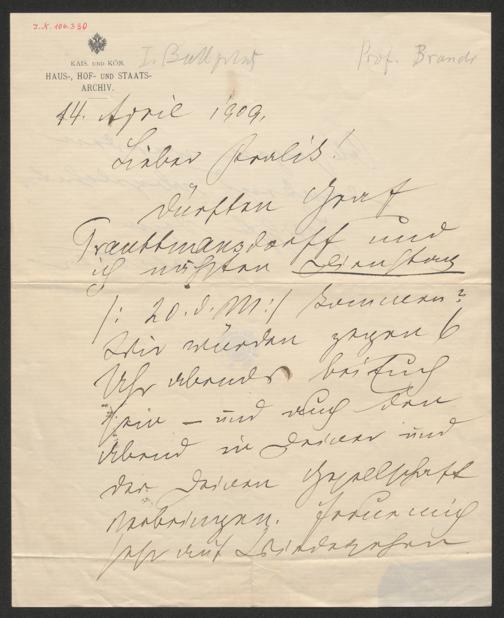 I.N. 106.330
I. Ballplatz
Prof. Brandi
KAIS. UND KÖN.
HAUS-, HOF- UND STAATS-
ARCHIV.
14. April 1909.
Lieber Kralik!
Dürften Graf
Trauttmansdorff und
ich nächsten Dienstag
/: 20. d. M:/ kommen?
Wir würden gegen 6
Uhr abends bei Euch
sein – und auch den
Abend in Deiner und
der Deinen Gesellschaft
verbringen. Freue mich
sehr auf Wiedersehen